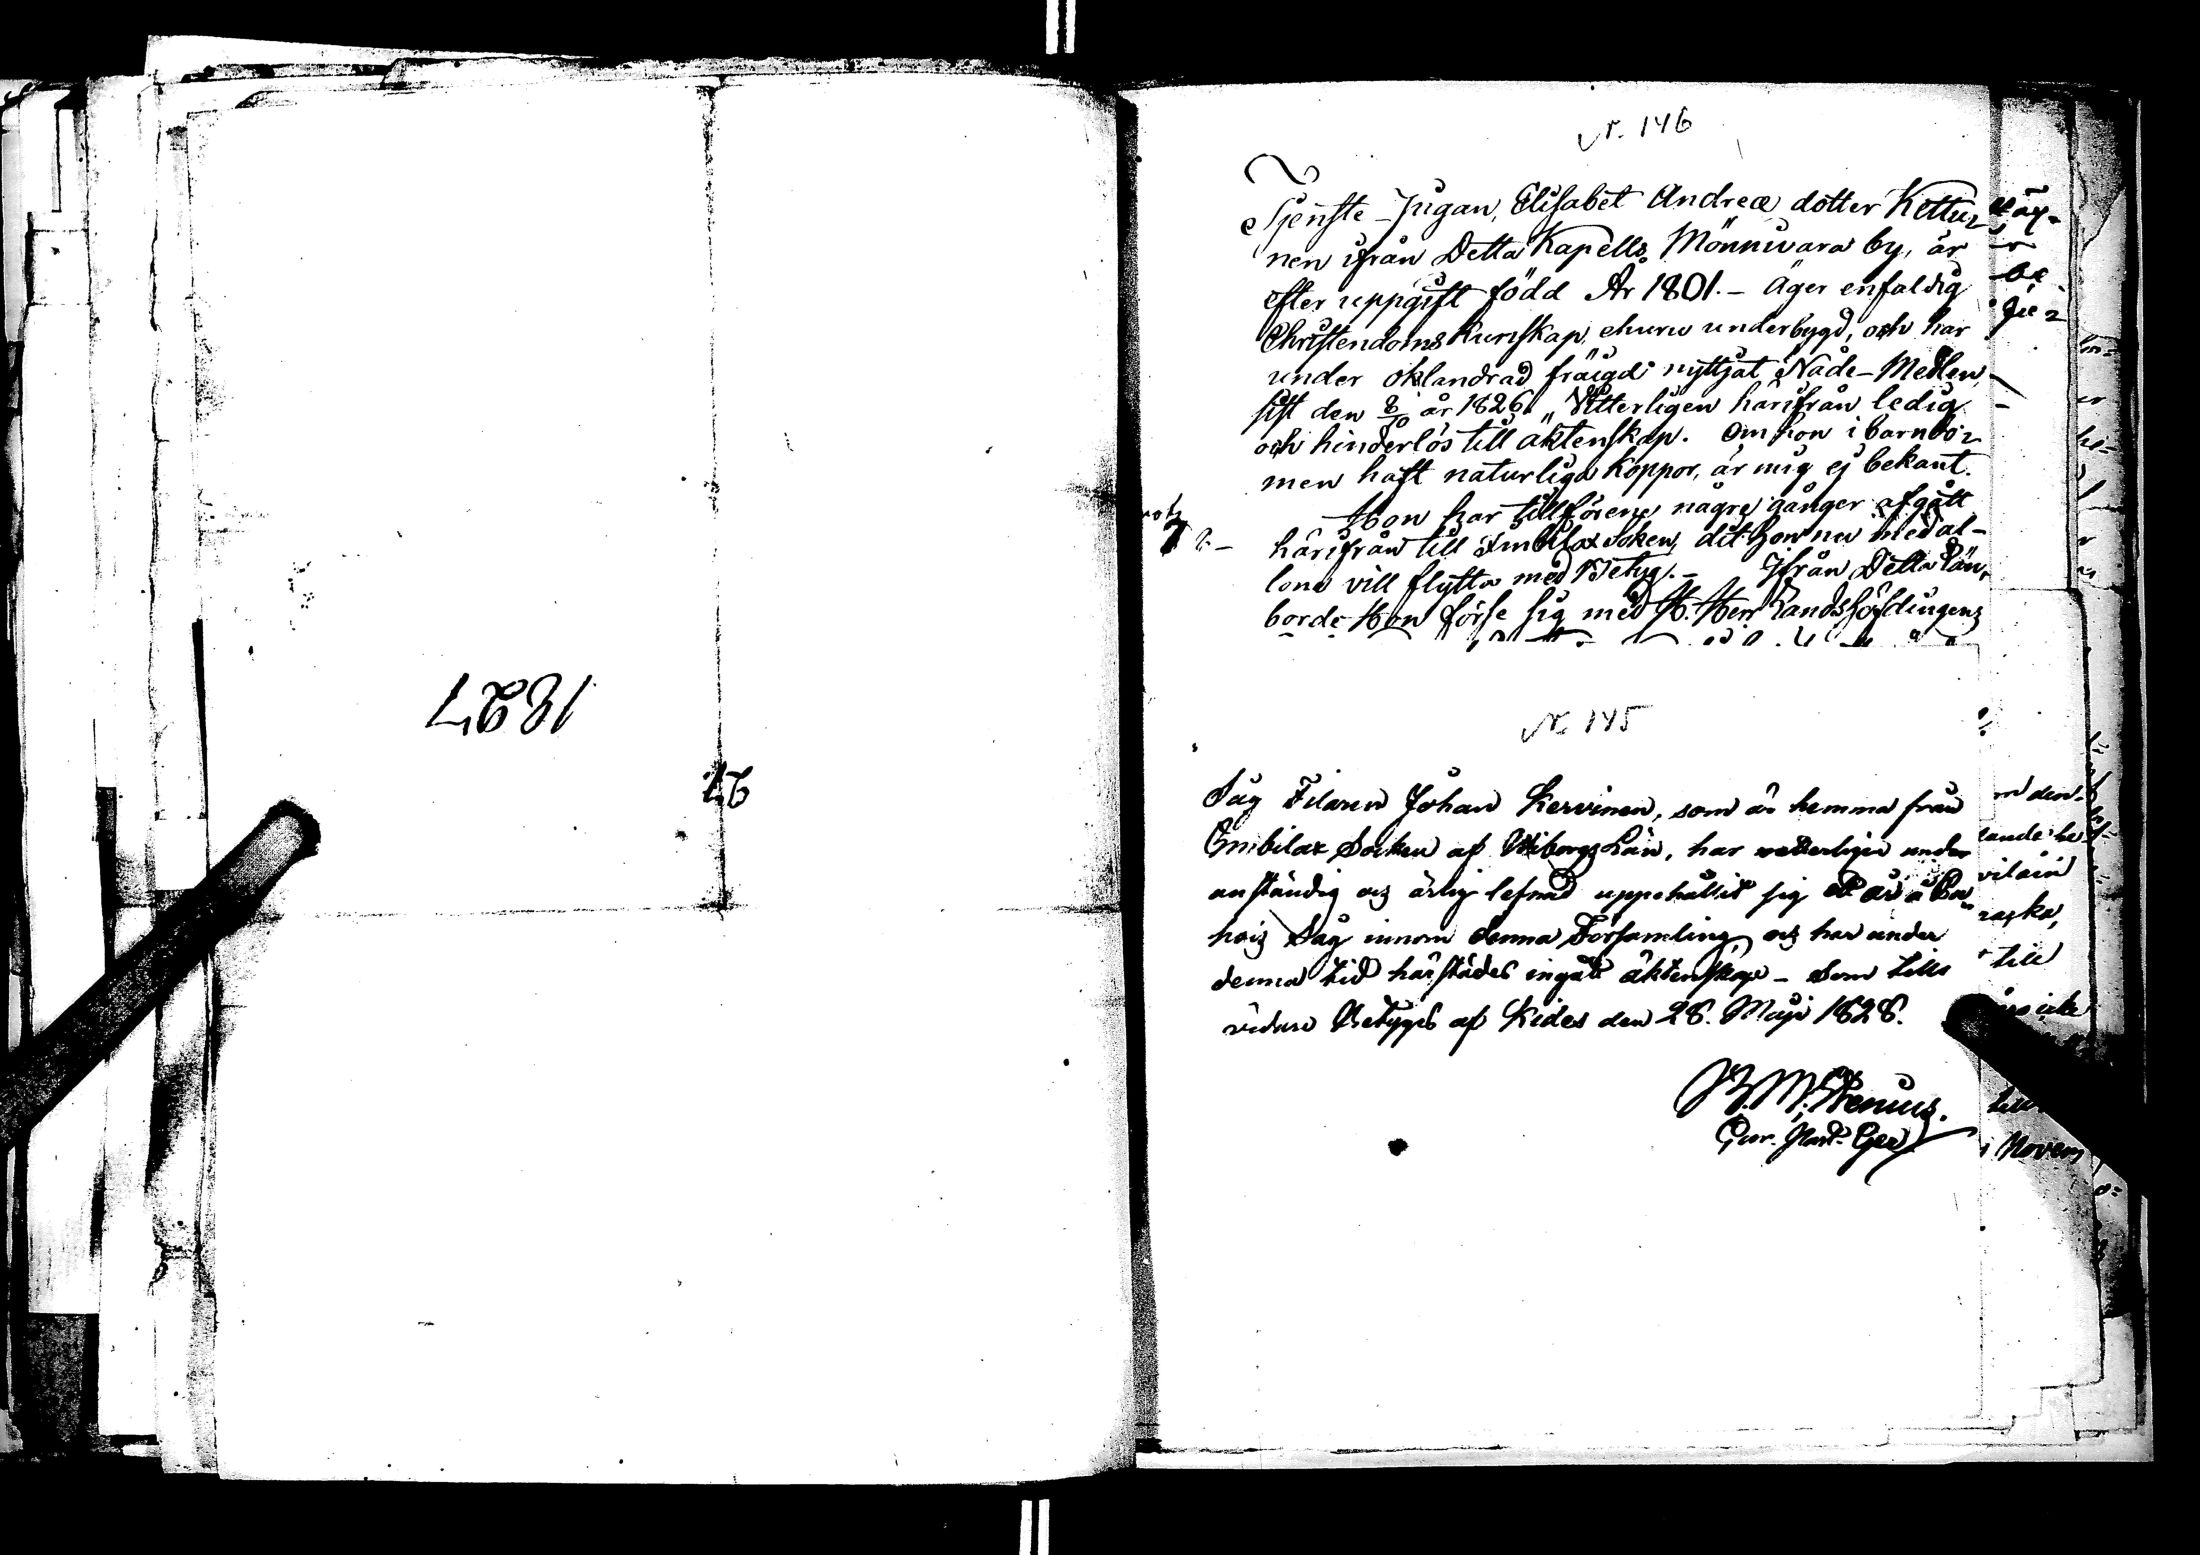 1827
27.
N. 146
Tjenste-Pigan, Elisabet Andreæ dotter Kettu-
nen ifrån Detta Kapells Mönnivara by, är
efter uppgift född År 1801. – Äger enfaldig
Christendoms Kunskap, ehuru underbygd, och har
under oklandrad frägd nyttjat Nåde-Medlen,
sist den 8/10 år 1826. Vitterligen härifrån ledig
och hinderlös till äktenskap. Om hon i barndo-
men haft naturliga Koppor, är mig ej bekant.
Hon har tillförene några gånger afgått
härifrån till Imbilax Soken, dit hon nu med al-
lona vill flytta med Betyg. – Ifrån Detta Län,
borde Hon förse sig med H. Herr Landshöfdingens
N. 145
Såg Filaren Johan Kervinen, som är hemma från
Imbilax Socken af Wiborgs Län, har vetterligen under
anständig och ärlig lefnad uppehållit sig ett år å
Såg innom denna Församling, och har under
denna tid härstädes ingått äktenskap – Som tills
vidare Betygas af Kides den 28. Maji 1828.
Stenius.
till
Novem